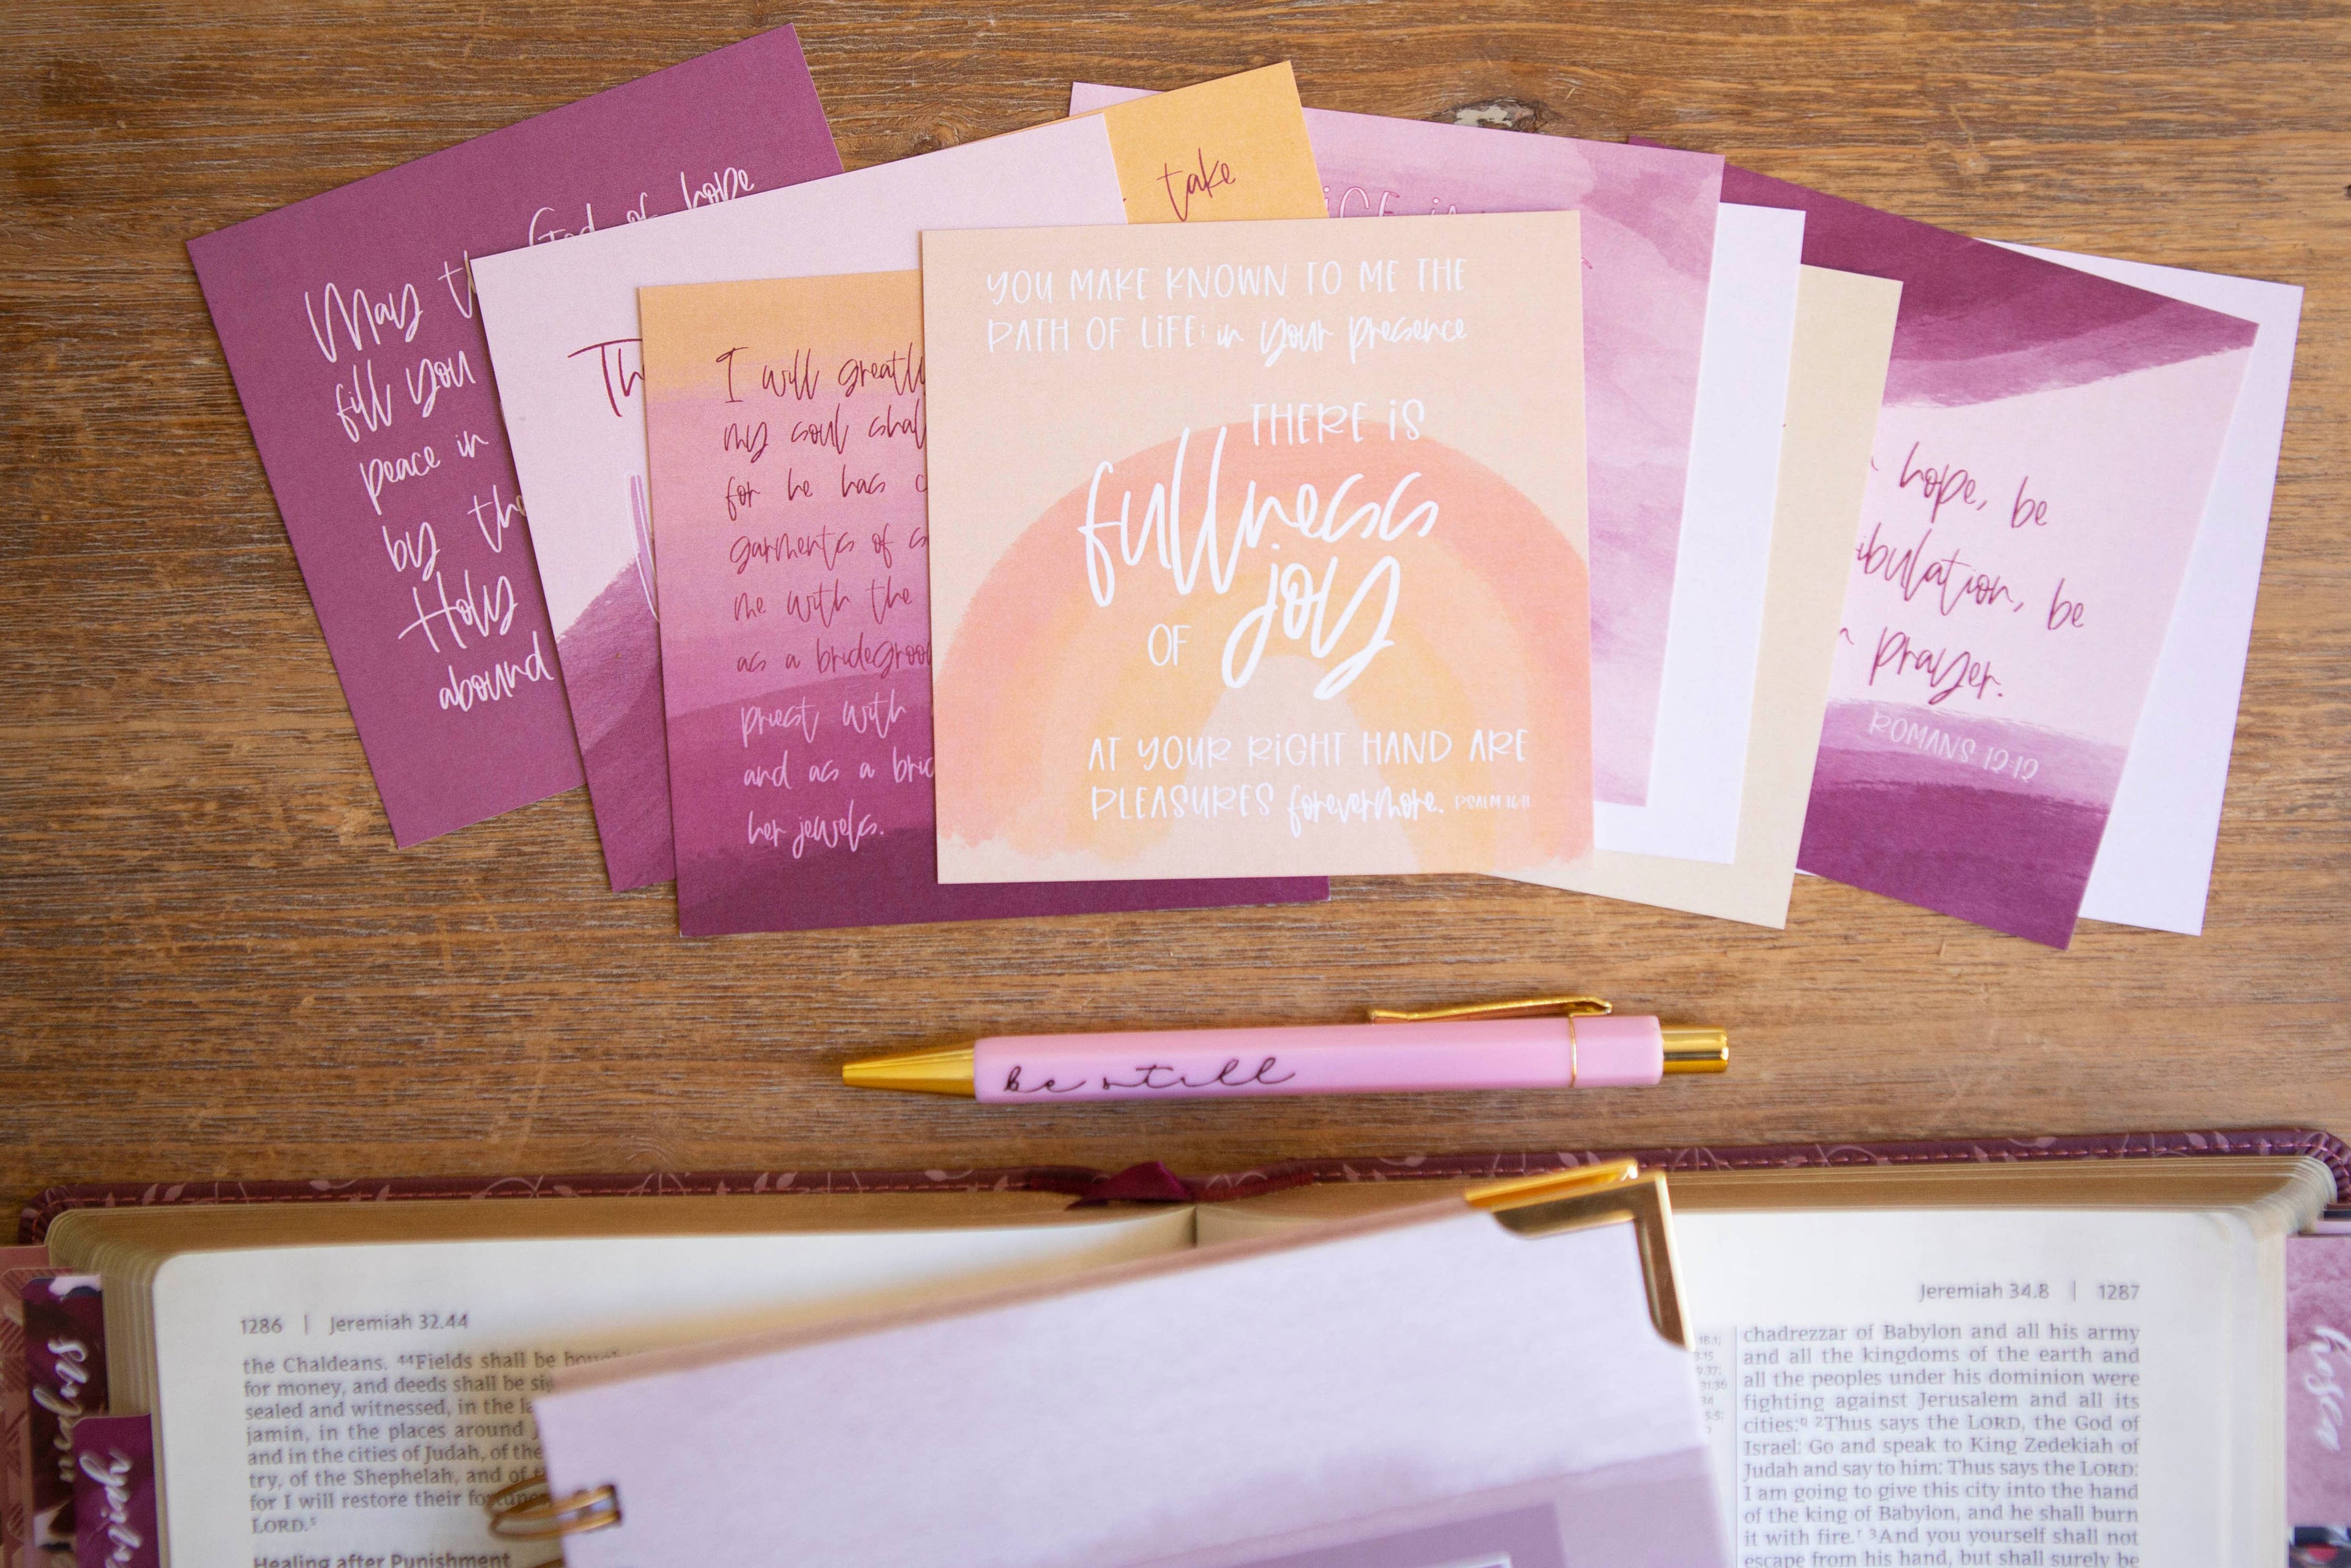 May
God of hope
fill you
peace in
by the
Holy
abound
Th
take
I will greatl
my soul shal
for he has c
garments of s
me with the
as a bridegroo
priest with
and as a brid
her jewels.
YOU MAKE KNOWN TO ME THE
PATH OF LiFE; in your presence
THERE iS
fullness
OF joy
AT YOUR RiGHT HAND ARE
PLEASURES forevermore. PSALM 16:11
hope, be
ibulation, be
prayer.
ROMANS 12:12
be still
1286 | Jeremiah 32.44
the Chaldeans. 44Fields shall be bough
for money, and deeds shall be sig
sealed and witnessed, in the la
jamin, in the places around J
and in the cities of Judah, of the
try, of the Shephelah, and of t
for I will restore their fortunes
LORD.s
Healing after Punishment
Jeremiah 34.8 | 1287
chadrezzar of Babylon and all his army
and all the kingdoms of the earth and
all the peoples under his dominion were
fighting against Jerusalem and all its
cities: 2Thus says the LORD, the God of
Israel: Go and speak to King Zedekiah of
Judah and say to him: Thus says the LORD:
I am going to give this city into the hand
of the king of Babylon, and he shall burn
it with fire.r 3And you yourself shall not
escape from his hand, but shall surely be
hosea